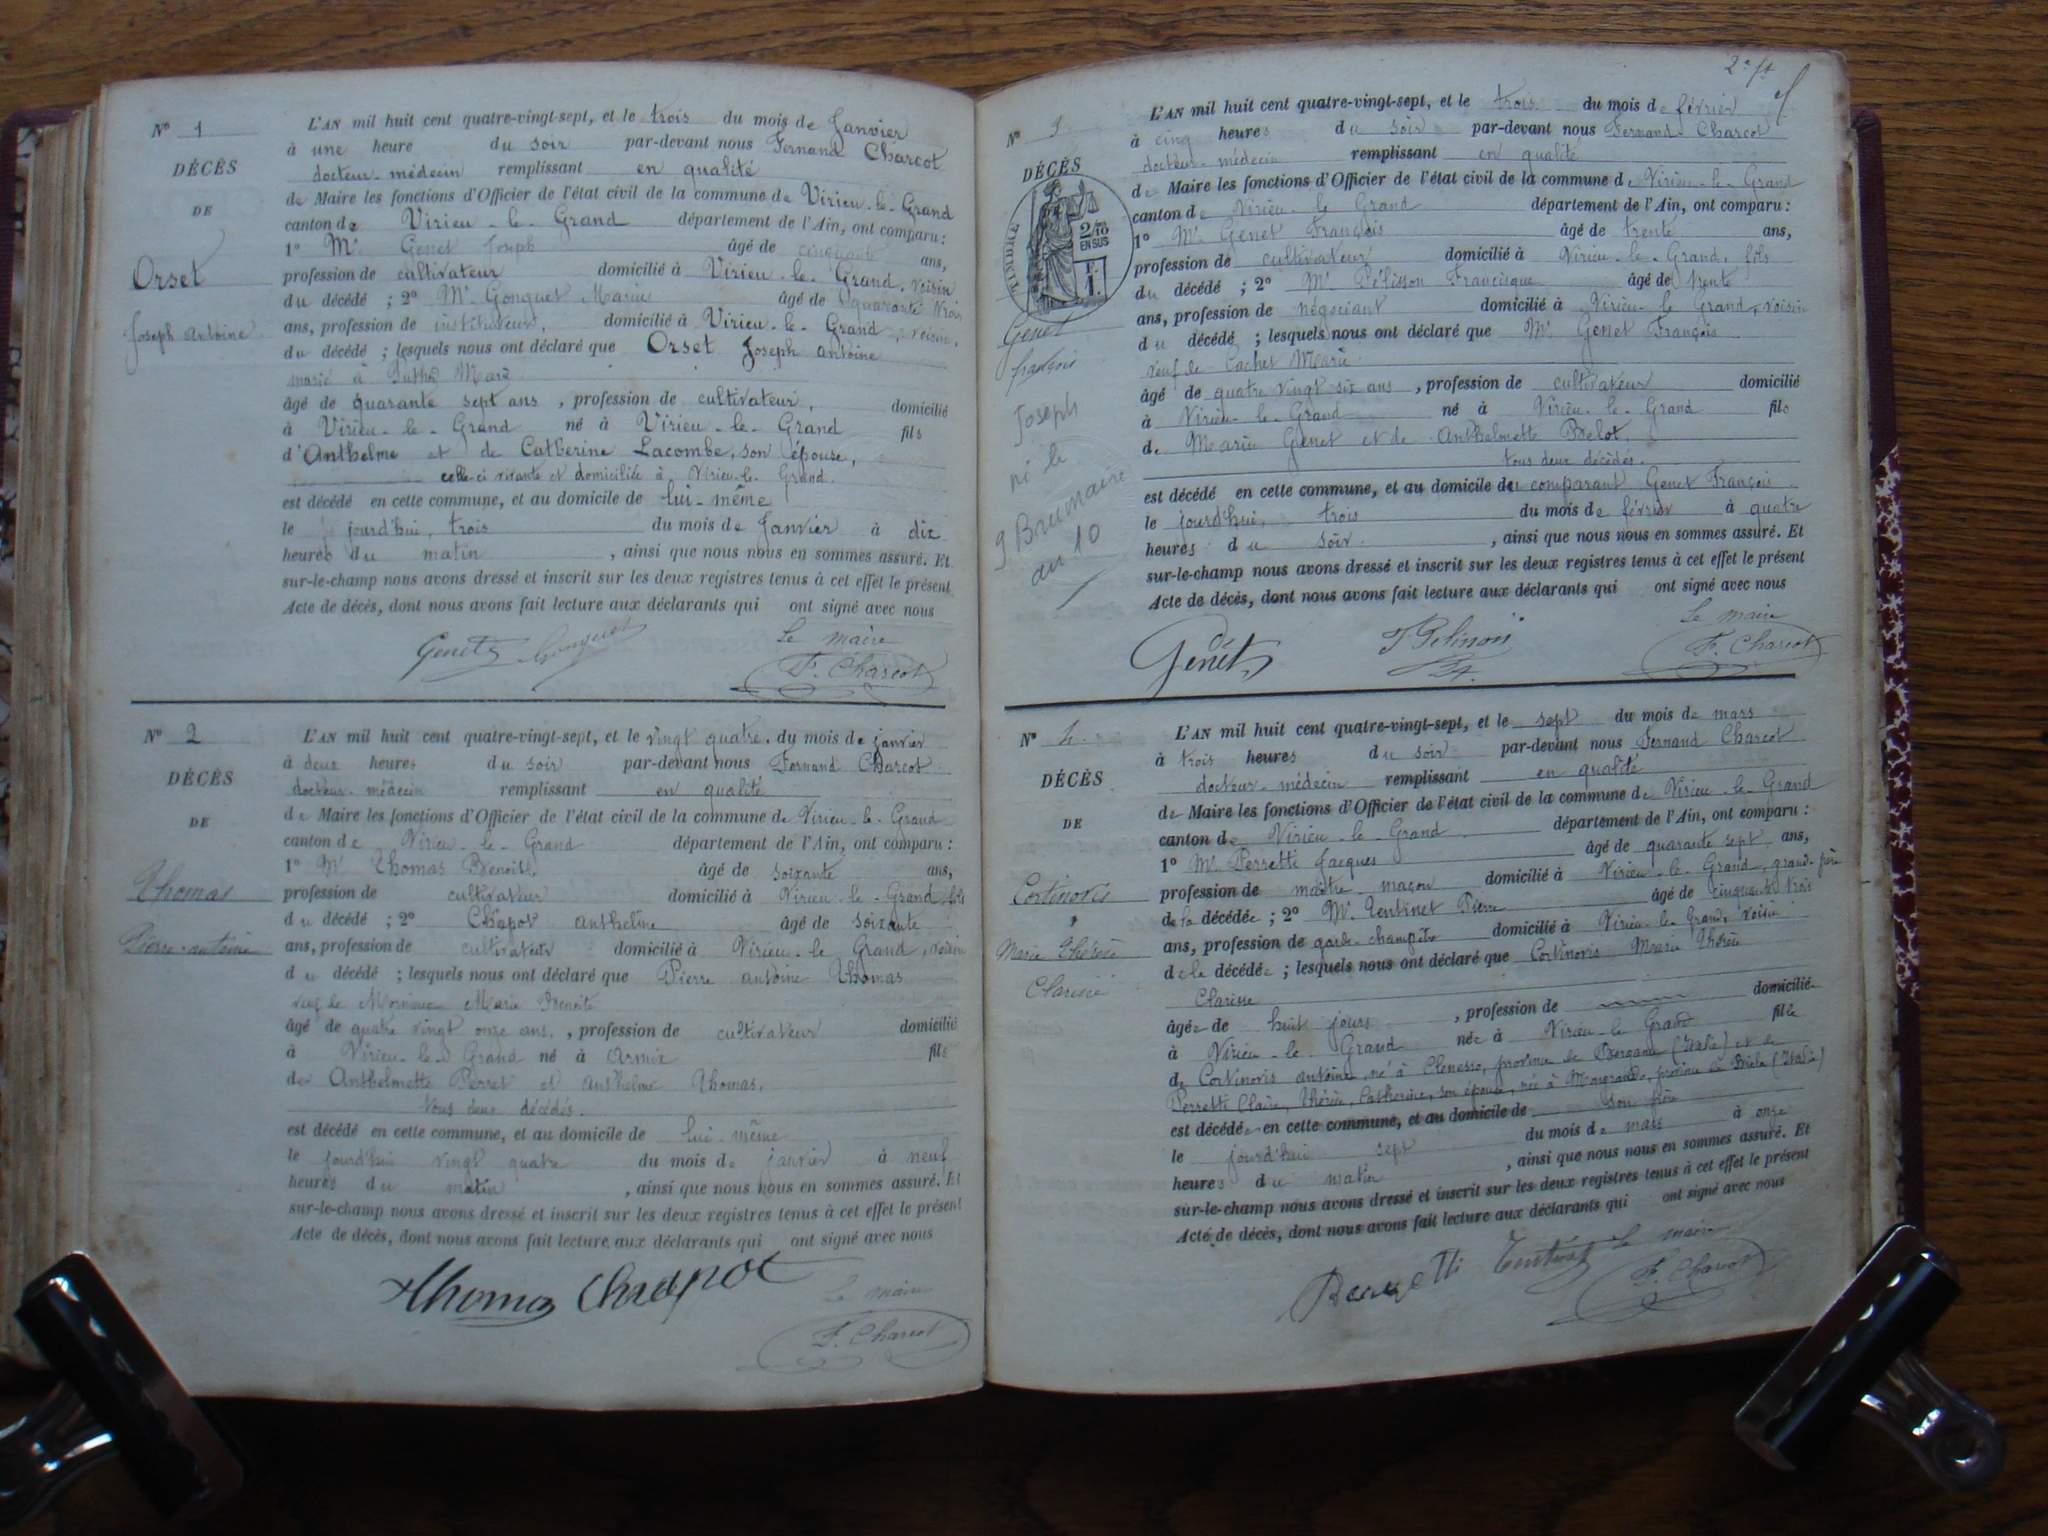 Nº 1
DÉCÈS
DE
Orset
Joseph Antoine
L'AN mil huit cent quatre-vingt-sept, et le trois du mois de Janvier
à une heure du soir par-devant nous Fernand Charcot
docteur-médecin remplissant en qualité
de Maire les fonctions d'Officier de l'état civil de la commune de Virieu-le-Grand
canton de Virieu-le-Grand département de l'Ain, ont comparu :
1º Mr Genet Joseph âgé de cinquante ans,
profession de cultivateur domicilié à Virieu-le-Grand, voisin
du décédé ; 2º Mr Gonguet Marie âgé de quarante trois
ans, profession de instituteur, domicilié à Virieu-le-Grand, voisin,
du décédé ; lesquels nous ont déclaré que Orset Joseph Antoine
marié à
âgé de quarante sept ans, profession de cultivateur, domicilié
à Virieu-le-Grand né à Virieu-le-Grand fils
d'Anthelme et de Catherine Lacombe, son épouse,
celle-ci vivante et domiciliée à Virieu-le-Grand.
est décédé en cette commune, et au domicile de lui-même
le jourd'hui, trois du mois de Janvier à dix
heures du matin, ainsi que nous nous en sommes assuré. Et
sur-le-champ nous avons dressé et inscrit sur les deux registres tenus à cet effet le présent
Acte de décès, dont nous avons fait lecture aux déclarants qui ont signé avec nous
Le maire
Genet Gonguet F. Charcot
Nº 2
DÉCÈS
DE
Thomas
Pierre-antoine
L'AN mil huit cent quatre-vingt-sept, et le vingt quatre. du mois de janvier
à deux heures du soir par-devant nous Fernand Charcot
docteur-médecin remplissant en qualité
de Maire les fonctions d'Officier de l'état civil de la commune de Virieu-le-Grand
canton de Virieu-le-Grand département de l'Ain, ont comparu :
1º Mr Thomas Benoit, âgé de soixante ans,
profession de cultivateur domicilié à Virieu-le-Grand fils
du décédé ; 2º Chapot anthelme âgé de soixante
ans, profession de cultivateur domicilié à Virieu-le-Grand, voisin
du décédé ; lesquels nous ont déclaré que Pierre antoine Thomas
veuf de Marie Benoite
âgé de quatre vingt onze ans, profession de cultivateur domicilié
à Virieu-le-Grand né à Armix fils
de Anthelmette Perret et Anthelme Thomas,
tous deux décédés.
est décédé en cette commune, et au domicile de lui-même
le jourd'hui vingt quatre du mois de janvier à neuf
heures du matin, ainsi que nous nous en sommes assuré. Et
sur-le-champ nous avons dressé et inscrit sur les deux registres tenus à cet effet le présent
Acte de décès, dont nous avons fait lecture aux déclarants qui ont signé avec nous
Thomas Chapot Le maire
F. Charcot
2e ft
Nº 3
DÉCÈS
TIMBRE
2/10
EN SUS
F.
1.
Genet
françois
Joseph
né le
9 Brumaire
an 10
L'AN mil huit cent quatre-vingt-sept, et le trois du mois de février
à cinq heures du soir par-devant nous Fernand Charcot
docteur-médecin remplissant en qualité
de Maire les fonctions d'Officier de l'état civil de la commune de Virieu-le-Grand
canton de Virieu-le-Grand département de l'Ain, ont comparu :
1º Mr Genet François âgé de trente ans,
profession de cultivateur domicilié à Virieu-le-Grand, fils
du décédé ; 2º Mr Pélisson Francisque âgé de trente
ans, profession de négociant domicilié à Virieu-le-Grand, voisin
du décédé ; lesquels nous ont déclaré que Mr Genet François
veuf de Cachet Marie
âgé de quatre vingt six ans, profession de cultivateur domicilié
à Virieu-le-Grand né à Virieu-le-Grand fils
de Marie Genet et de Anthelmette Belot,
tous deux décédés.
est décédé en cette commune, et au domicile du comparant Genet François
le jourd'hui, trois du mois de février à quatre
heures du soir, ainsi que nous nous en sommes assuré. Et
sur-le-champ nous avons dressé et inscrit sur les deux registres tenus à cet effet le présent
Acte de décès, dont nous avons fait lecture aux déclarants qui ont signé avec nous
Le maire
Genet F. Charcot
Nº 4
DÉCÈS
DE
Cortinovis
Marie Thérèse
Clarisse
L'AN mil huit cent quatre-vingt-sept, et le sept du mois de mars
à trois heures du soir par-devant nous Fernand Charcot
docteur-médecin remplissant en qualité
de Maire les fonctions d'Officier de l'état civil de la commune de Virieu-le-Grand
canton de Virieu-le-Grand département de l'Ain, ont comparu :
1º Mr Perretti Jacques âgé de quarante sept ans,
profession de maître-maçon domicilié à Virieu-le-Grand, grand-père
de la décédée ; 2º Mr Tentinet Pierre âgé de cinquante trois
ans, profession de garde-champêtre domicilié à Virieu-le-Grand, voisin
de la décédée ; lesquels nous ont déclaré que Cortinovis Marie Thérèse
Clarisse
âgée de huit jours, profession de domicilié
à Virieu-le-Grand née à Virieu-le-Grand fille
de Cortinovis antoine, né à province de Bergame (Italie) et de
Perretti Claire, Thérèse, Catherine, son épouse, née à Mongrando, province de (Italie)
est décédée en cette commune, et au domicile de son père
le jourd'hui sept du mois de mars à onze
heures du matin, ainsi que nous nous en sommes assuré. Et
sur-le-champ nous avons dressé et inscrit sur les deux registres tenus à cet effet le présent
Acte de décès, dont nous avons fait lecture aux déclarants qui ont signé avec nous
Le maire
Tentinet F. Charcot